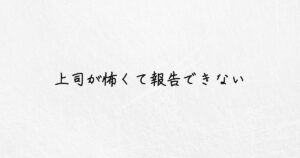 上司が怖くて報告できない